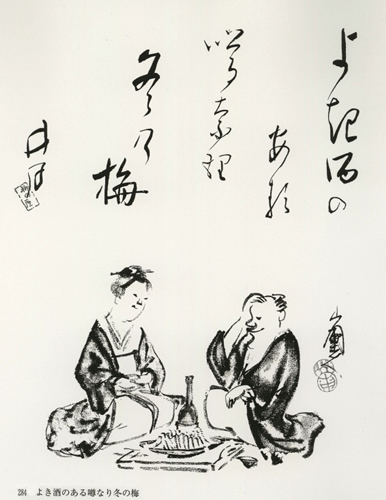 よき酒の
ある
噂なり
冬の梅
井月
284 よき酒のある噂なり冬の梅